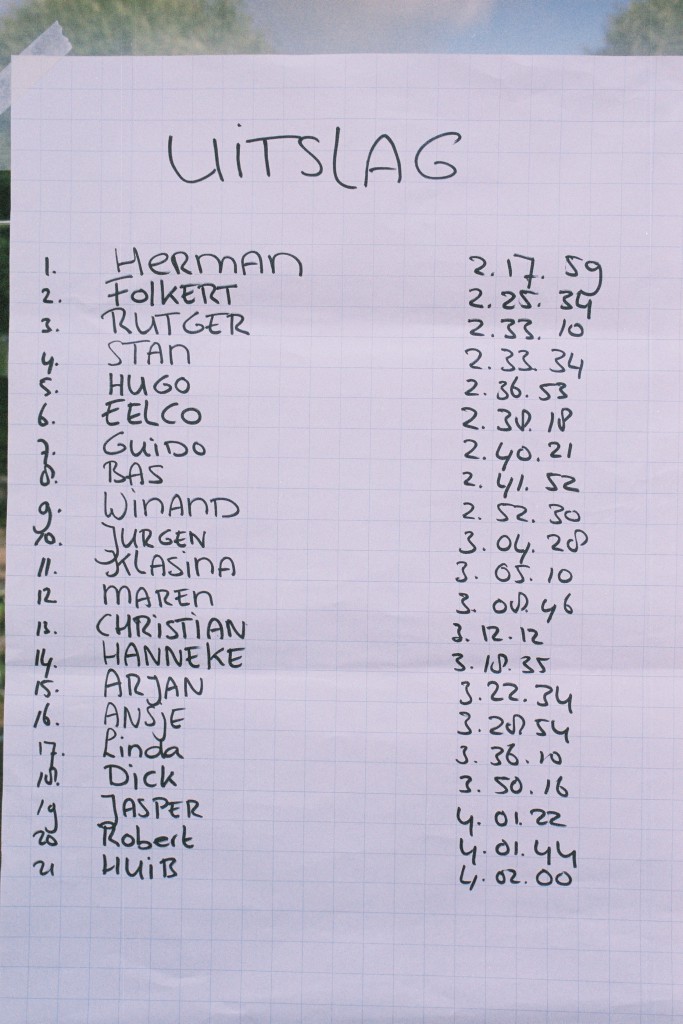 UITSLAG
1. HERMAN 2.17.59
2. FOLKERT 2.25.34
3. RUTGER 2.33.10
4. STAN 2.33.34
5. HUGO 2.36.53
6. EELCO 2.38.18
7. GUIDO 2.40.21
8. BAS 2.41.52
9. WINAND 2.52.30
10. JURGEN 3.04.28
11. KLASINA 3.05.10
12 MAREN 3.08.46
13. CHRISTIAN 3.12.12
14. HANNEKE 3.18.35
15. ARJAN 3.22.34
16. ANSJE 3.28.54
17. Linda 3.36.10
18. Dick 3.50.16
19 JASPER 4.01.22
20 Robert 4.01.44
21 HUIB 4.02.00